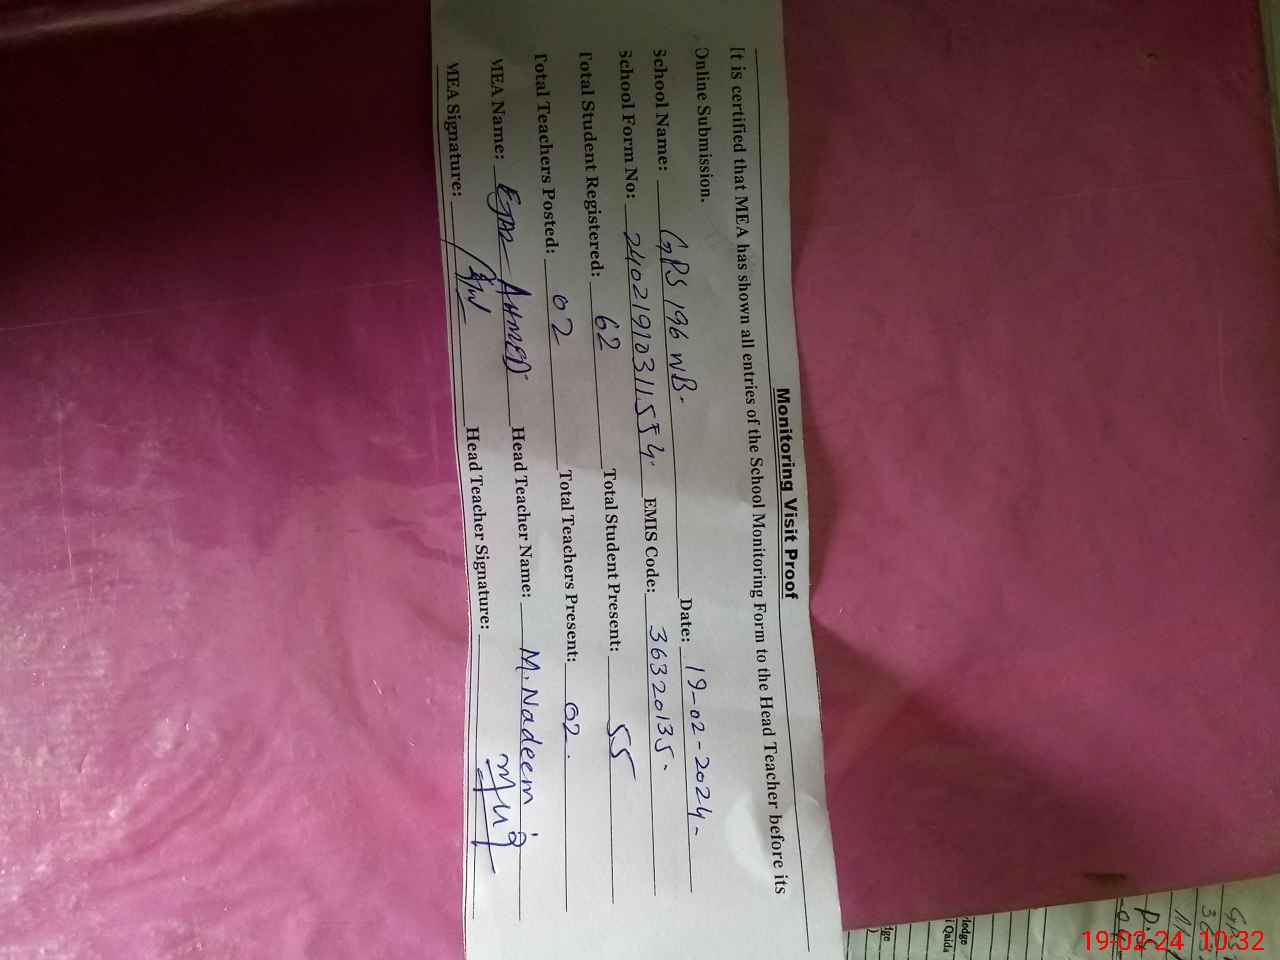 Monitoring Visit Proof
It is certified that MEA has shown all entries of the School Monitoring Form to the Head Teacher before its
Online Submission.
School Name: GPS 196 WB. Date: 19-02-2024-
School Form No: 2402191031155 4. EMIS Code: 36320135.
Total Student Registered: 62 Total Student Present: 55
Total Teachers Posted: 02 Total Teachers Present: 02.
MEA Name: EJAZ AHMED Head Teacher Name: M. Nadeem
MEA Signature: Head Teacher Signature:
ledge
i Qaida
19-02-24 10:32